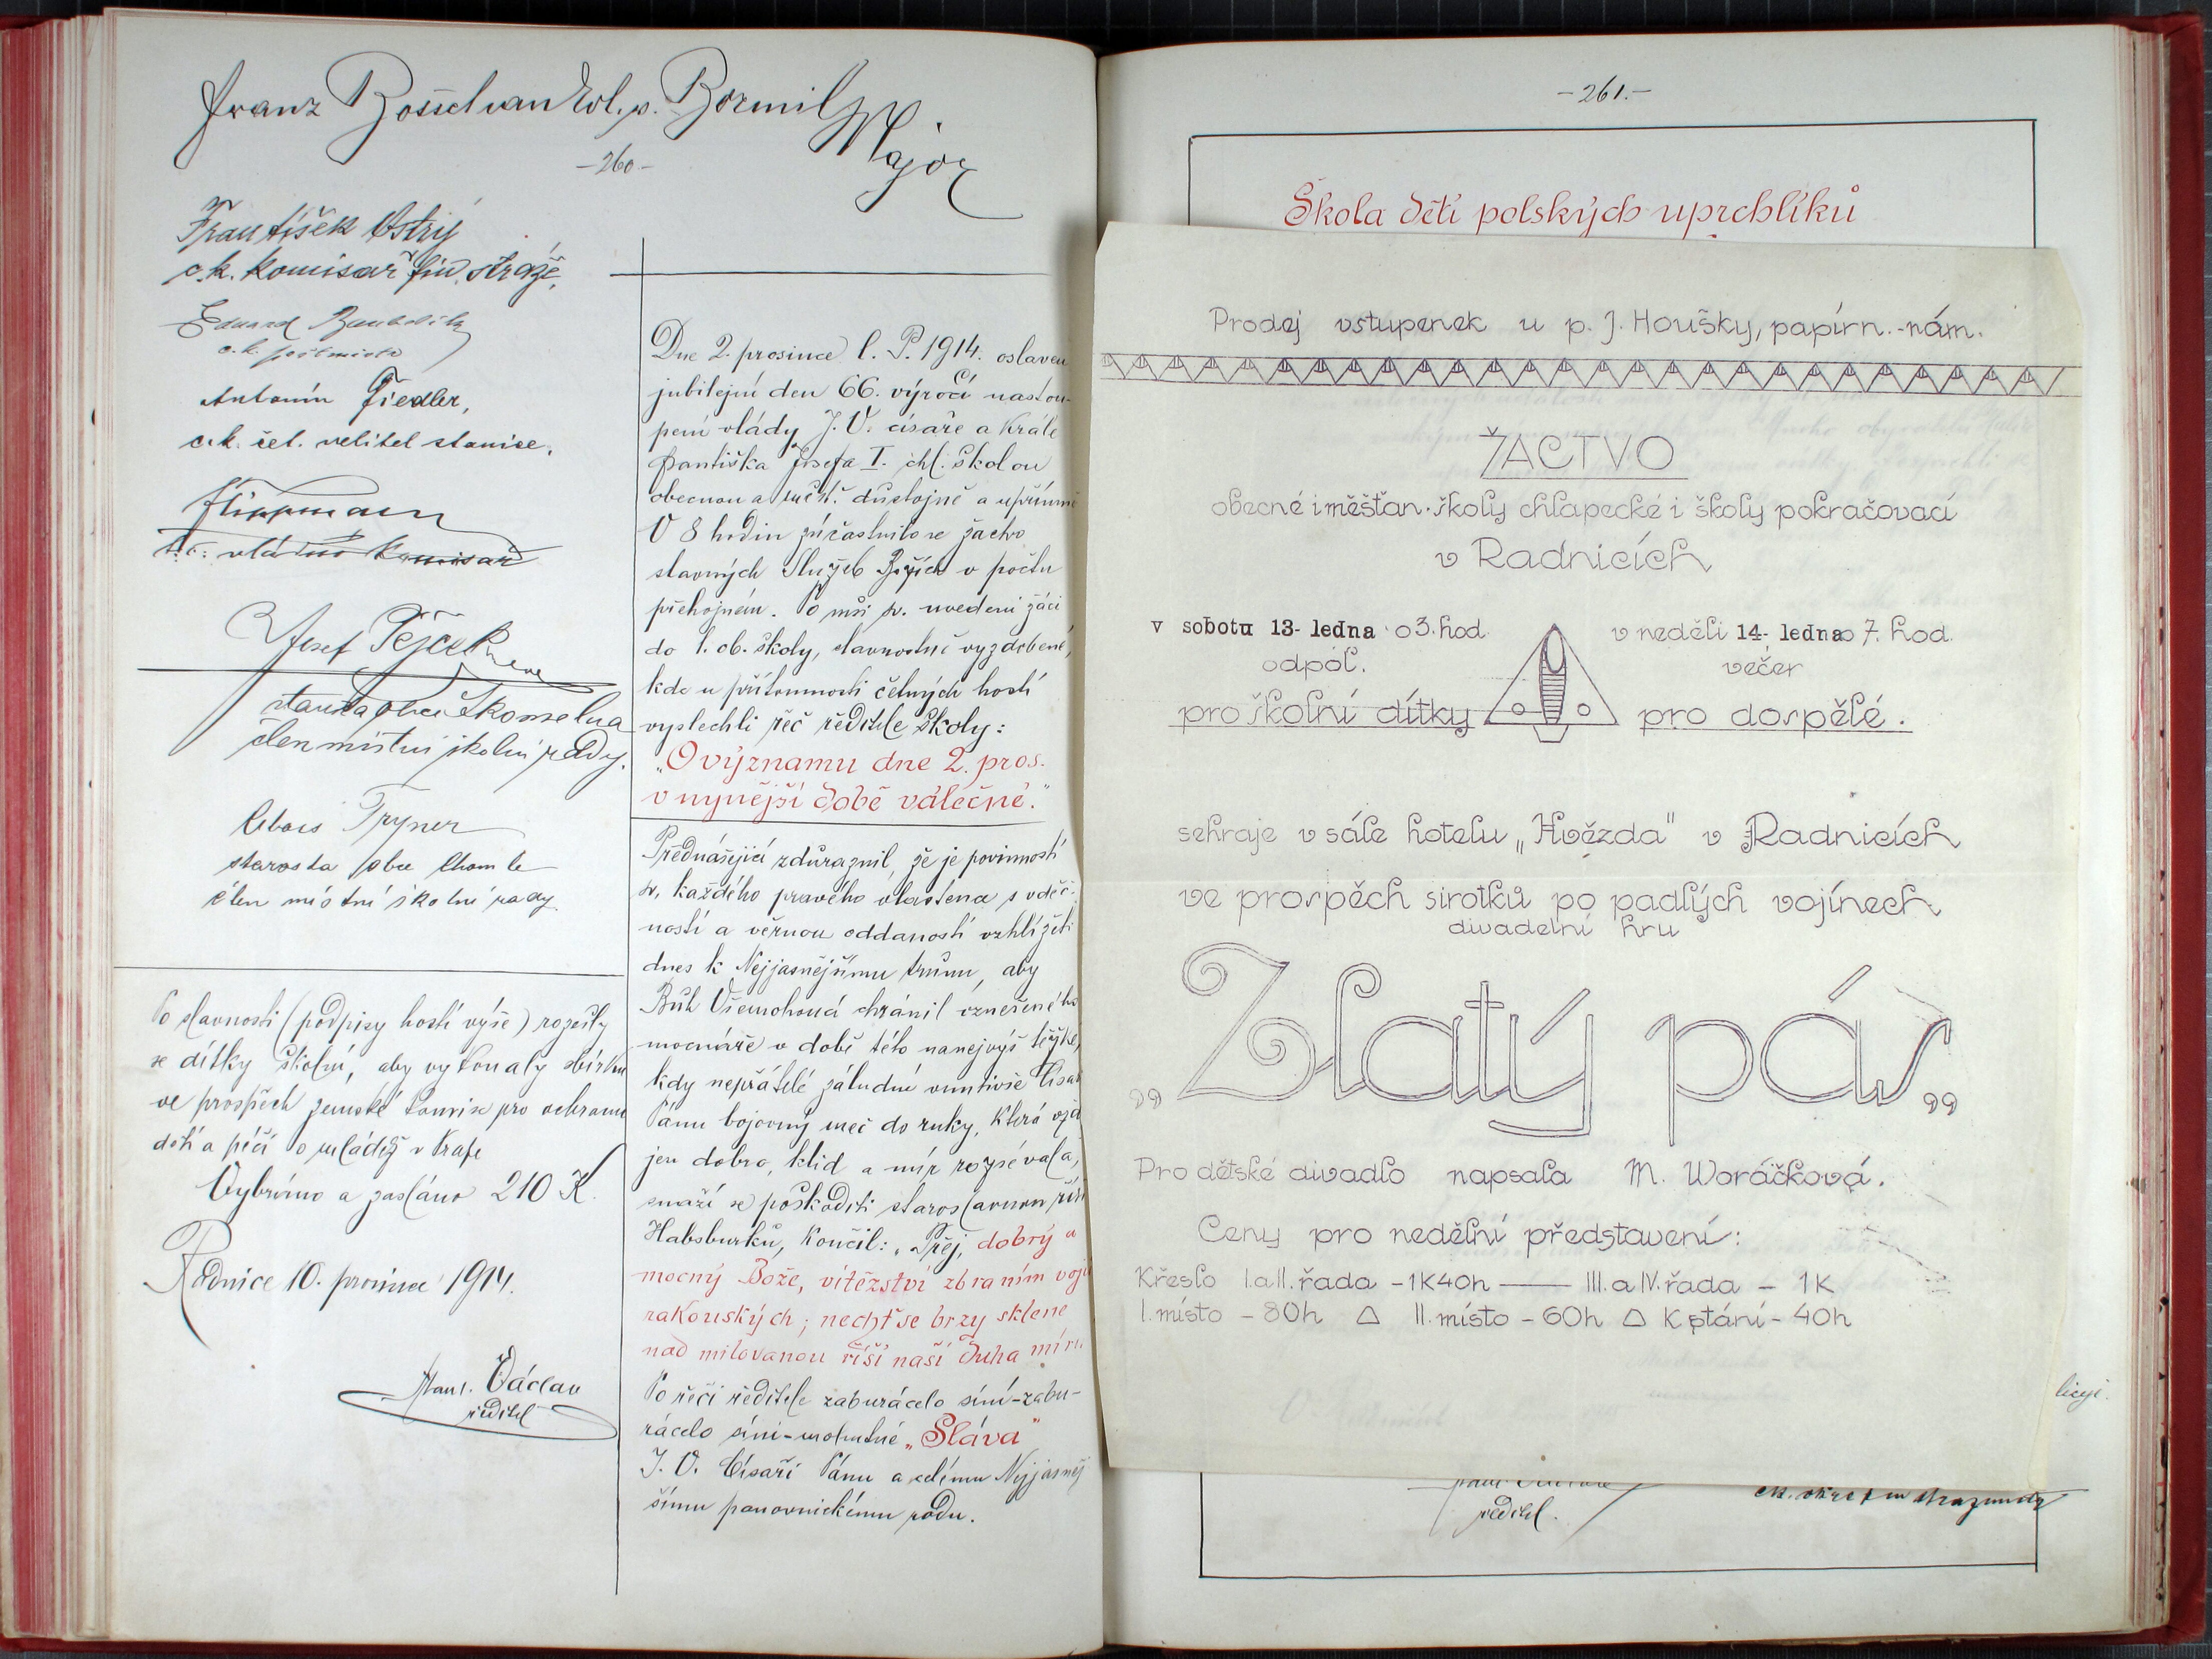 Franz
Major
- 260 -
František Ostrý
c.k. komisař fin. stráže.
Eduard
c.k.
Antonín Fiedler,
c.k. čet. velitel stanice.
Josef Pejček
člen místní školní rady.
Tryner
starosta obce
člen místní školní rady.
Po slavnosti (podpisy hostí výše) rozešly
se dítky školní, aby vykonaly sbírku
ve prospěch zemské komise pro ochranu
dětí a péči o mládež v Praze
Vybráno a zasláno 210 K.
Radnice 10. prosince 1914.
Václav
ředitel
Dne 2. prosince l. P. 1914. oslaven
jubilejní den 66. výročí nastou-
pení vlády J. V. císaře a krále
Františka Josefa I. chl. školou
obecnou a měšť. důstojně a upřímně
V 8 hodin zúčastnilo se žactvo
slavných Služeb Božích v počtu
přehojném. Po mši sv. uvedeni žáci
do 1. ob. školy, slavnostně vyzdobené,
kde u přítomnosti četných hostí
vyslechli řeč ředitele školy:
„O významu dne 2. pros.
v nynější době válečné."
Přednášející zdůraznil, že je povinností
sv. každého pravého vlastence s vděč-
ností a věrnou oddaností vzhlížeti
dnes k Nejjasnějšímu trůnu, aby
Bůh Všemohoucí chránil vznešeného
mocnáře v době této nanejvýš těžké,
kdy nepřátelé záludní vnutivše Císaři
Pánu bojovný meč do ruky, která vžd
jen dobro, klid a mír rozsévala,
snaží se poškoditi staroslavnou říši
Habsburků, končil: „Přej, dobrý a
mocný Bože, vítězství zbraním voj
rakouských; nechť se brzy sklene
nad milovanou říší naší duha míru
Po řeči ředitele zaburácelo síní-zabu-
rácelo síní-mohutné „Sláva"
J. V. Císaři Pánu a celému Nejjasněj
šímu panovnickému rodu.
- 261. -
Škola dětí polských uprchlíků
Prodej vstupenek u p. J. Houšky, papírn.-nám.
ŽACTVO
obecné i měšťan. školy chlapecké i školy pokračovací
v Radnicích
v sobotu 13- ledna o 3. hod. v neděli 14- ledna o 7. hod.
odpol. večer
pro školní dítky pro dospělé.
sehraje v sále hotelu „Hvězda" v Radnicích
ve prospěch sirotků po padlých vojínech
divadelní hru
„Zlatý pás„
Pro dětské divadlo napsala M. Woráčková.
Ceny pro nedělní představení:
Křeslo I. a II. řada - 1K40h — III. a IV. řada - 1K
I. místo - 80h △ II. místo - 60h △ K stání - 40h
ředitel.